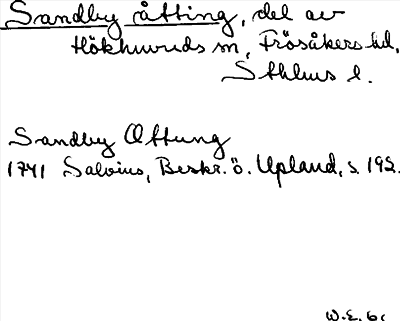 Sandby åtting, del av
Hökhuvuds sn, Frösåkers hd,
Sthlms l.
Sandby Ottung
1741 Salvius, Beskr. ö. Upland, s. 192.
W.E. 61